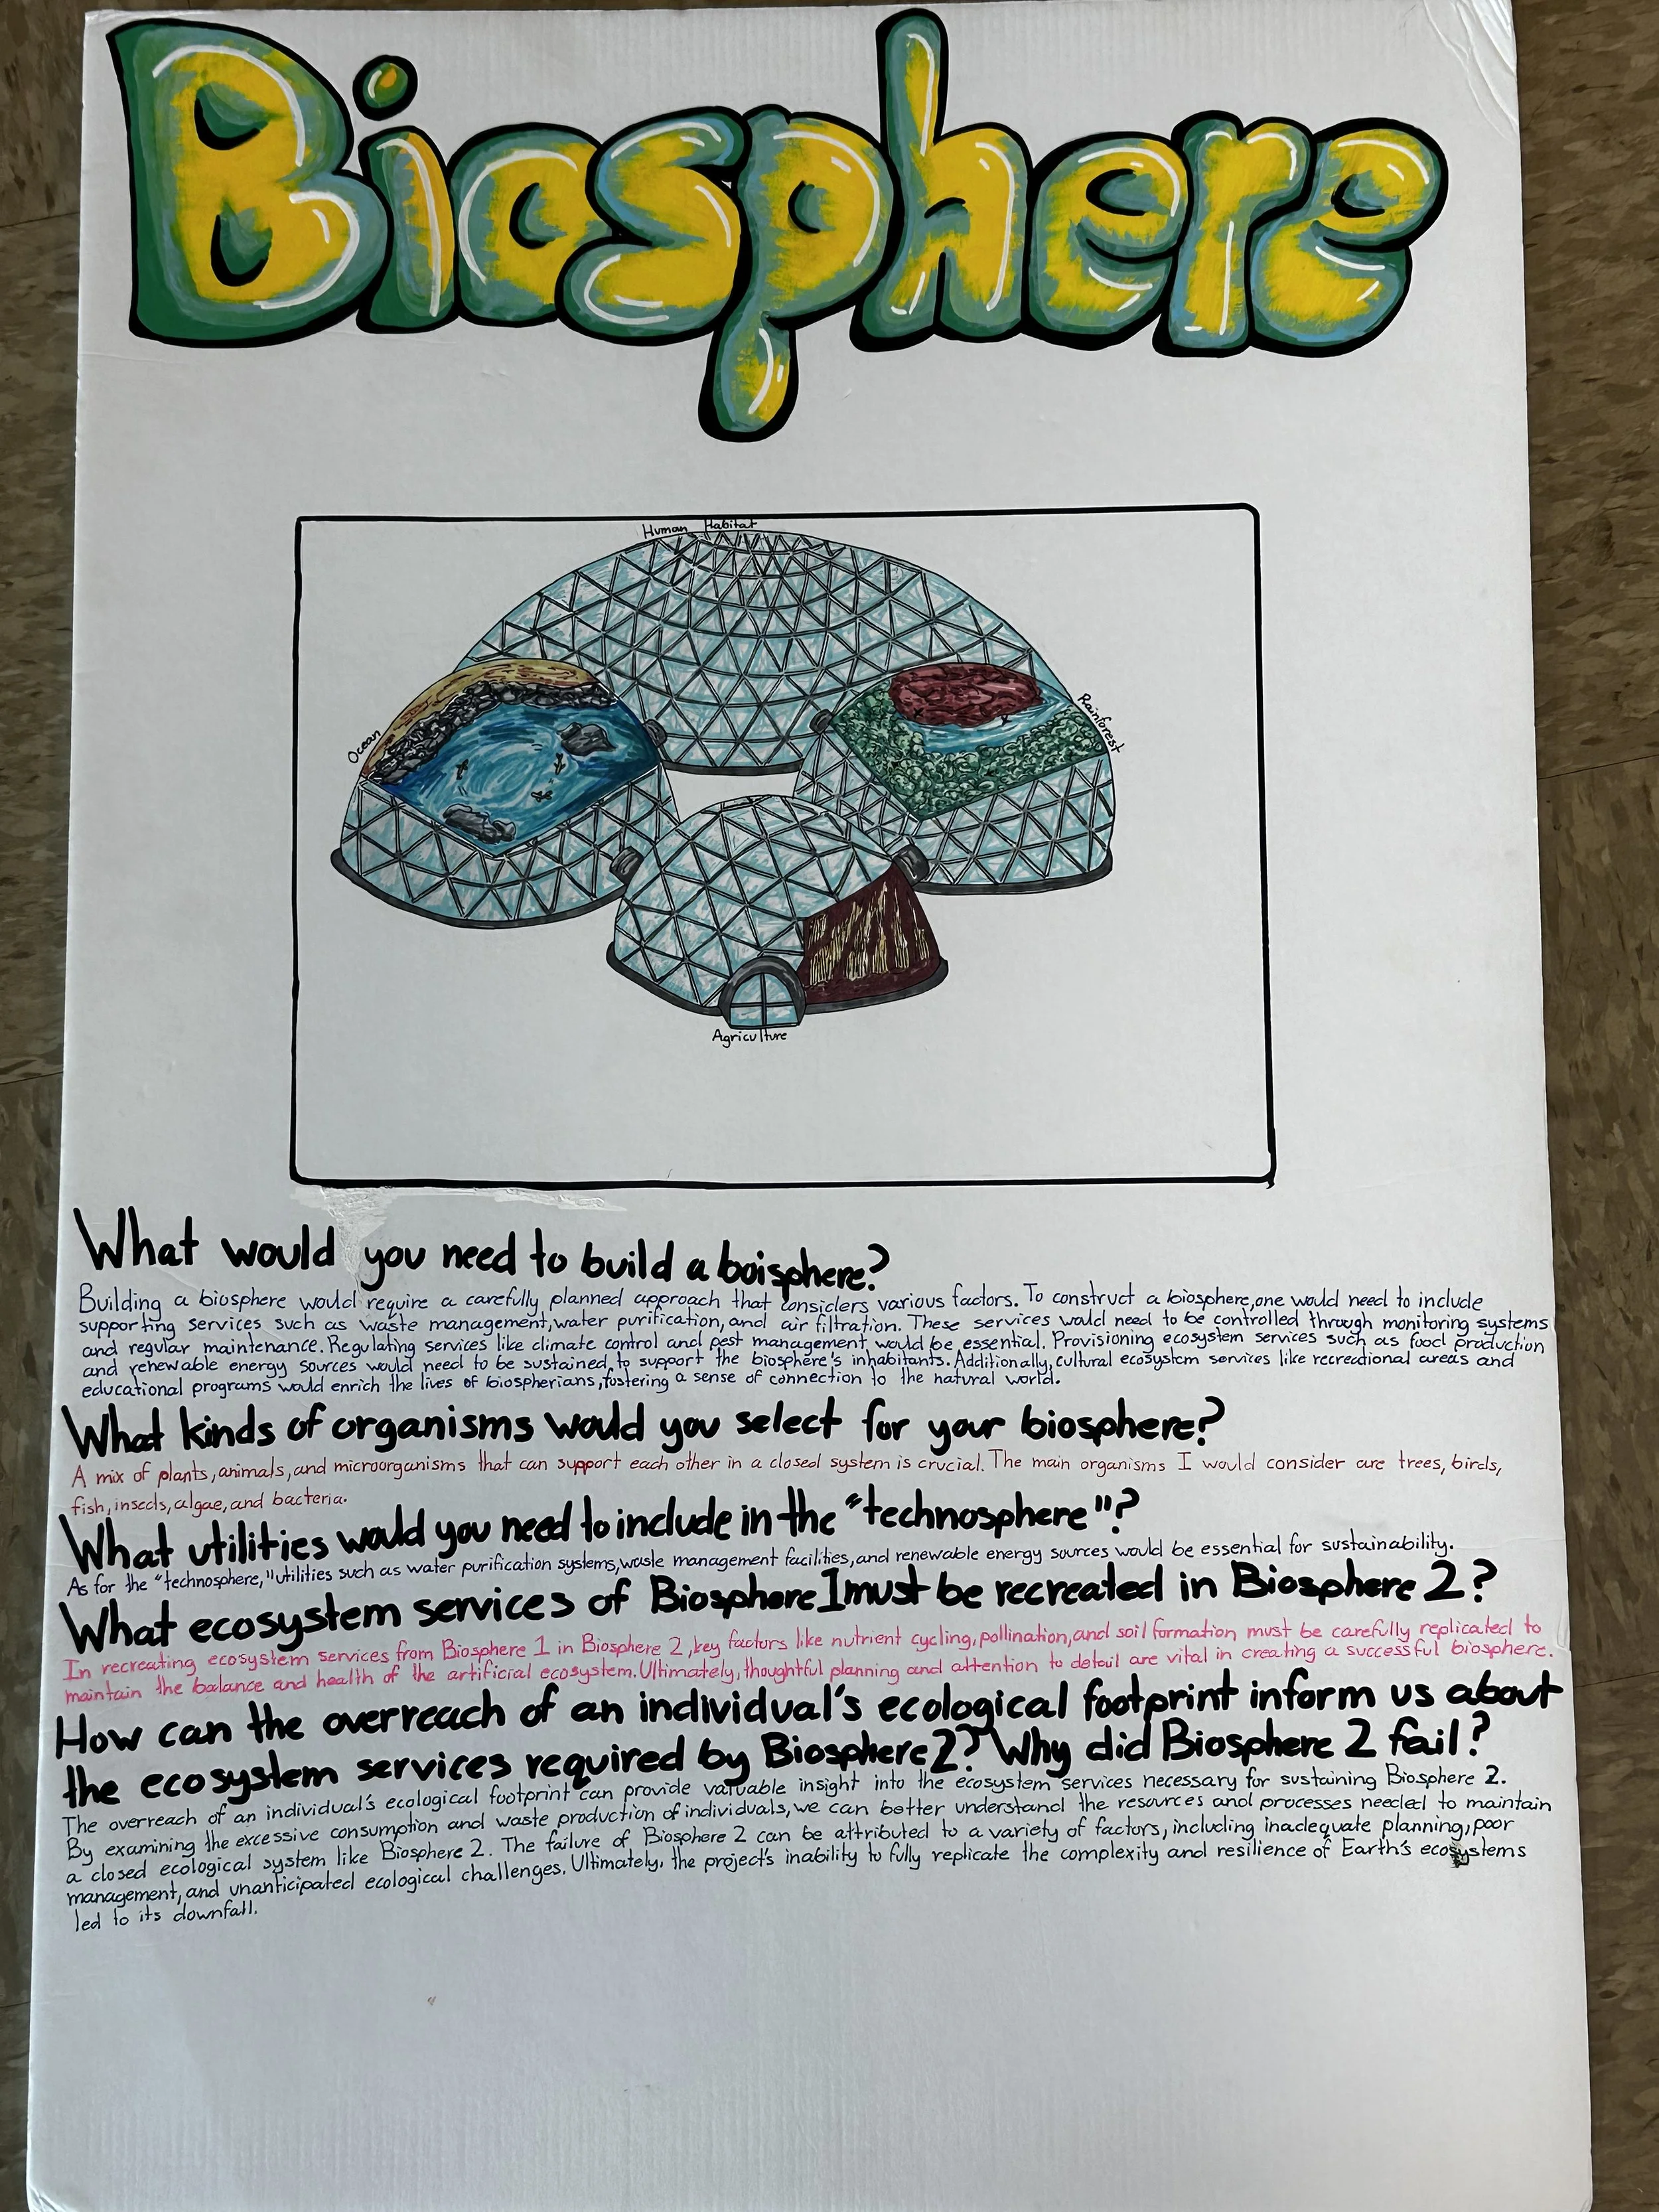 Biosphere
Human Habitat
Ocean
Rainforest
Agriculture
What would you need to build a boisphere?
Building a biosphere would require a carefully planned approach that considers various factors. To construct a biosphere, one would need to include
supporting services such as waste management, water purification, and air filtration. These services would need to be controlled through monitoring systems
and regular maintenance. Regulating services like climate control and pest management would be essential. Provisioning ecosystem services such as food production
and renewable energy sources would need to be sustained to support the biosphere's inhabitants. Additionally, cultural ecosystem services like recreational areas and
educational programs would enrich the lives of biospherians, fostering a sense of connection to the natural world.
What kinds of organisms would you select for your biosphere?
A mix of plants, animals, and microorganisms that can support each other in a closed system is crucial. The main organisms I would consider are trees, birds,
fish, insects, algae, and bacteria.
What utilities would you need to include in the "technosphere"?
As for the "technosphere," utilities such as water purification systems, waste management facilities, and renewable energy sources would be essential for sustainability.
What ecosystem services of Biosphere 1 must be recreated in Biosphere 2?
In recreating ecosystem services from Biosphere 1 in Biosphere 2, key factors like nutrient cycling, pollination, and soil formation must be carefully replicated to
maintain the balance and health of the artificial ecosystem. Ultimately, thoughtful planning and attention to detail are vital in creating a successful biosphere.
How can the overreach of an individual's ecological footprint inform us about
the ecosystem services required by Biosphere 2? Why did Biosphere 2 fail?
The overreach of an individual's ecological footprint can provide valuable insight into the ecosystem services necessary for sustaining Biosphere 2.
By examining the excessive consumption and waste production of individuals, we can better understand the resources and processes needed to maintain
a closed ecological system like Biosphere 2. The failure of Biosphere 2 can be attributed to a variety of factors, including inadequate planning, poor
management, and unanticipated ecological challenges. Ultimately, the project's inability to fully replicate the complexity and resilience of Earth's ecosystems
led to its downfall.